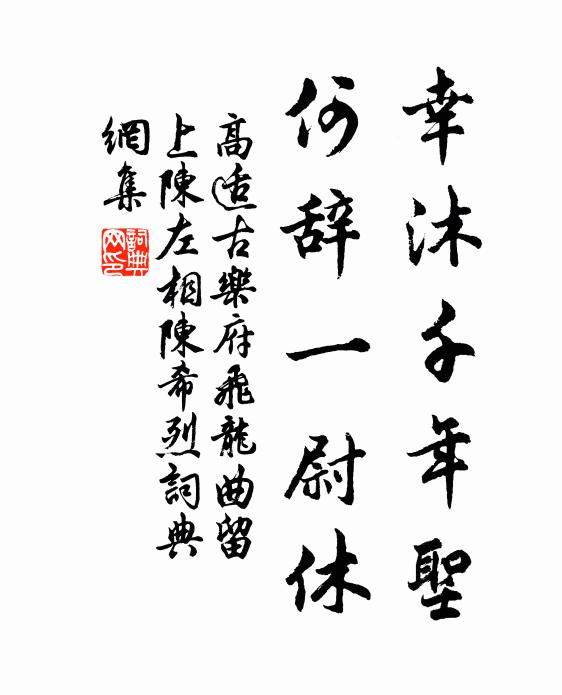 幸沐千年聖
何辞一尉休
高适古樂府飛龍曲留
上陳左相陳希烈詞典
網集
詞典
网印